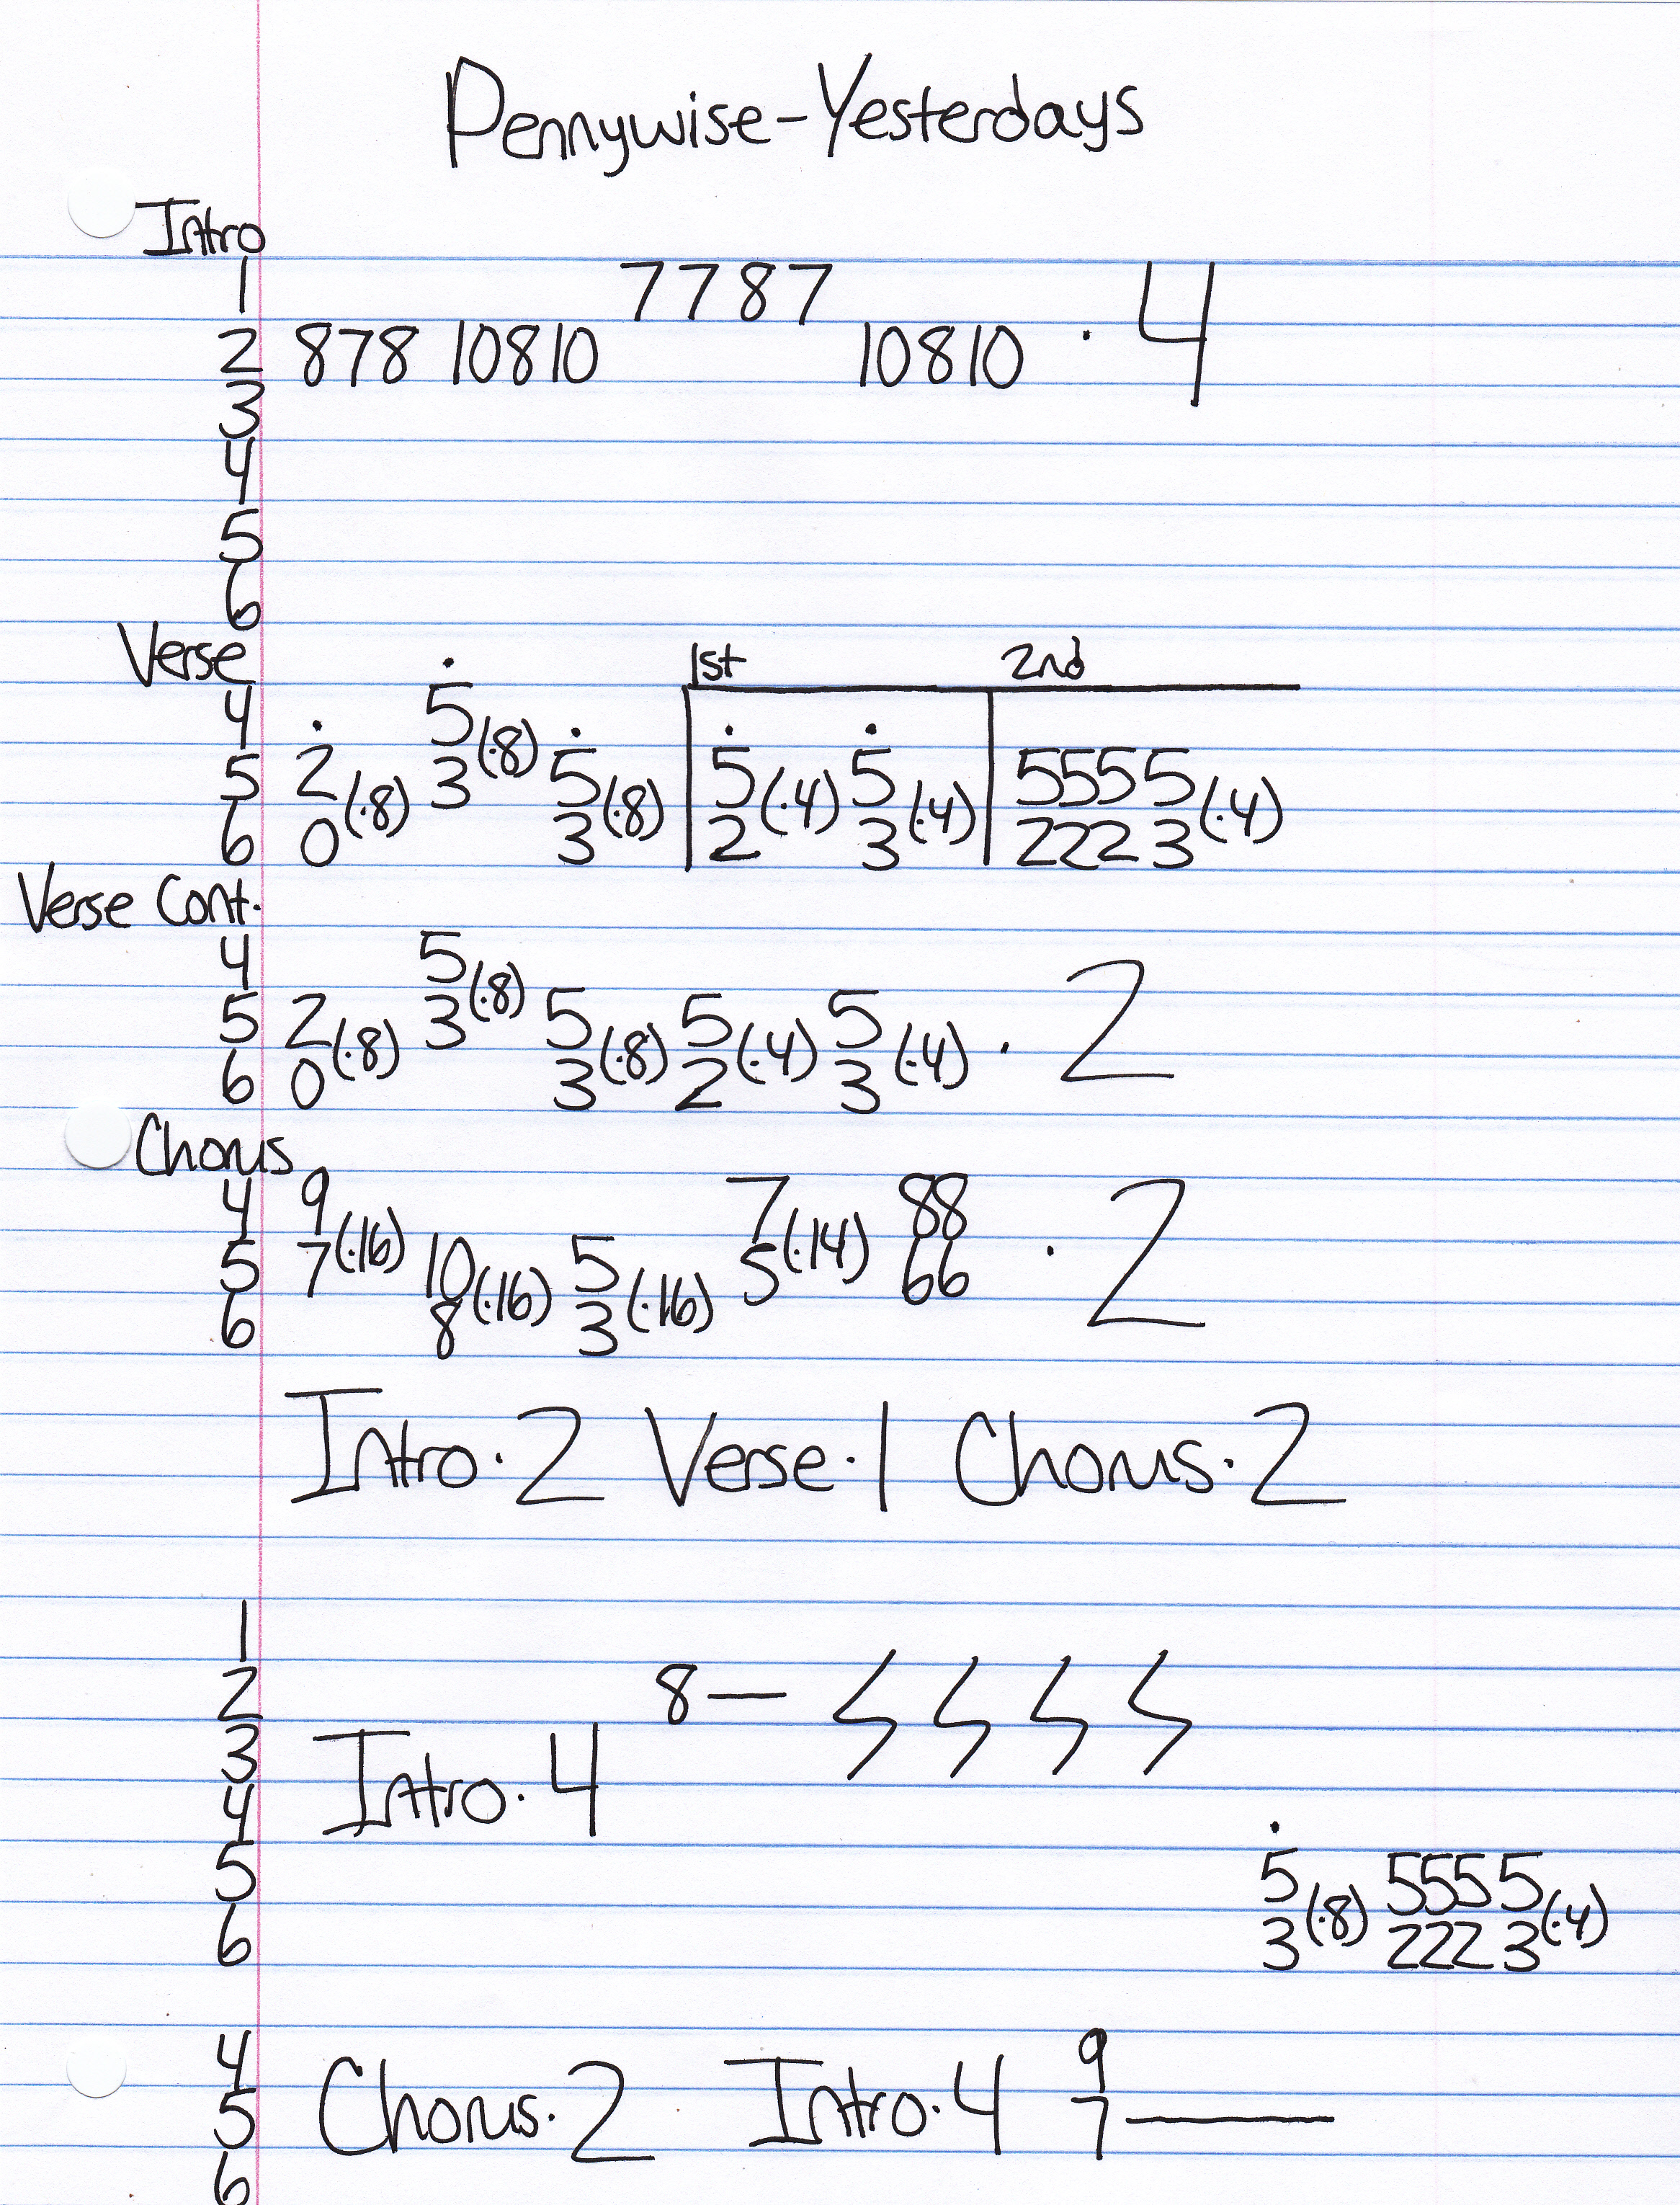 Pennywise-Yesterdays
Intro
1 7 7 8 7
2 878 10810 10810 · 4
3
4
5
6
Verse 1st 2nd
4 5(·8)
5 2(·8) 3 5(·8) 5(·4) 5(·4) 5555(·4)
6 0 3 2 3 2223
Verse Cont.
4 5(·8)
5 2(·8) 3 5(·8) 5(·4) 5(·4) · 2
6 0 3 2 3
Chorus
4 9(·16) 7(·14) 88
5 7 10(·16) 5(·16) 5 66 · 2
6 8 3
Intro·2 Verse·1 Chorus·2
1
2 8—
3 Intro·4
4
5 5(·8) 5555(·4)
6 3 2223
4 9
5 Chorus·2 Intro·4 7—
6